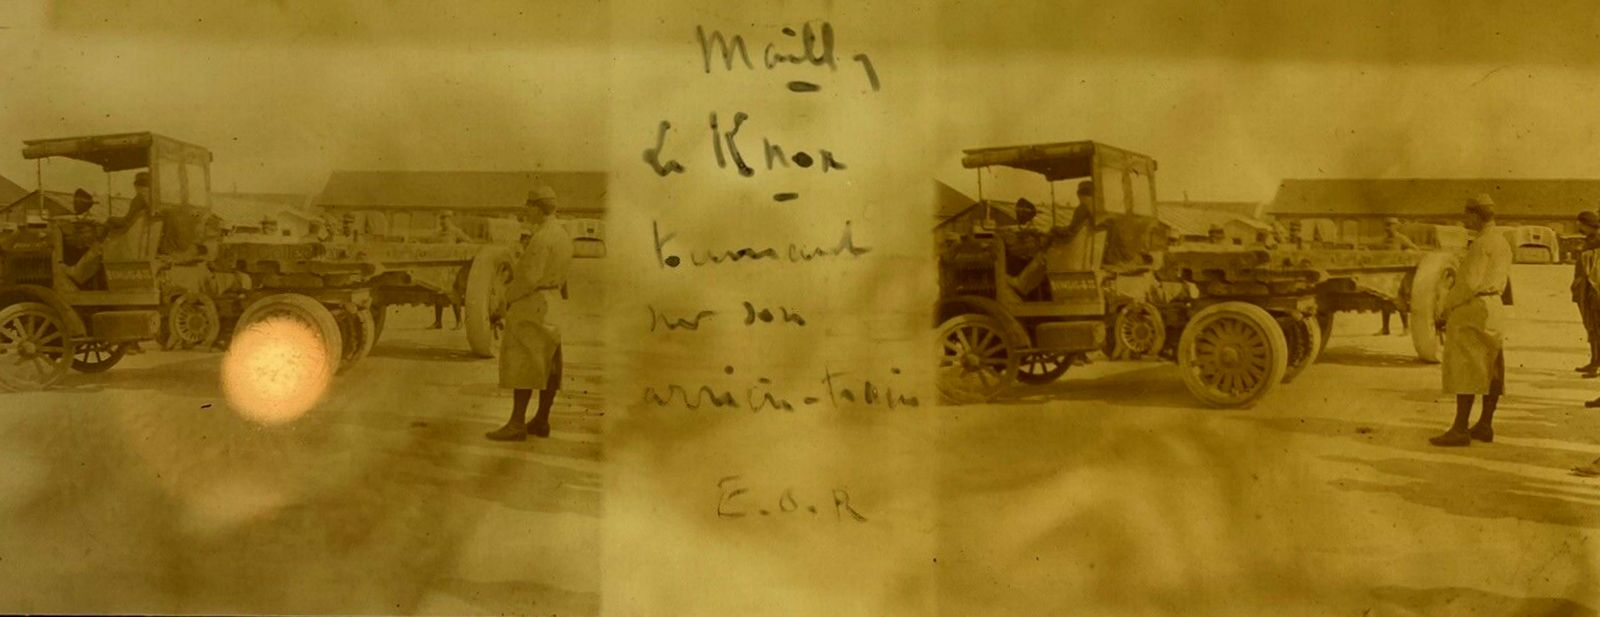 Mailly
Le Knox
tournant
sur son
arrière-train
E.O.R